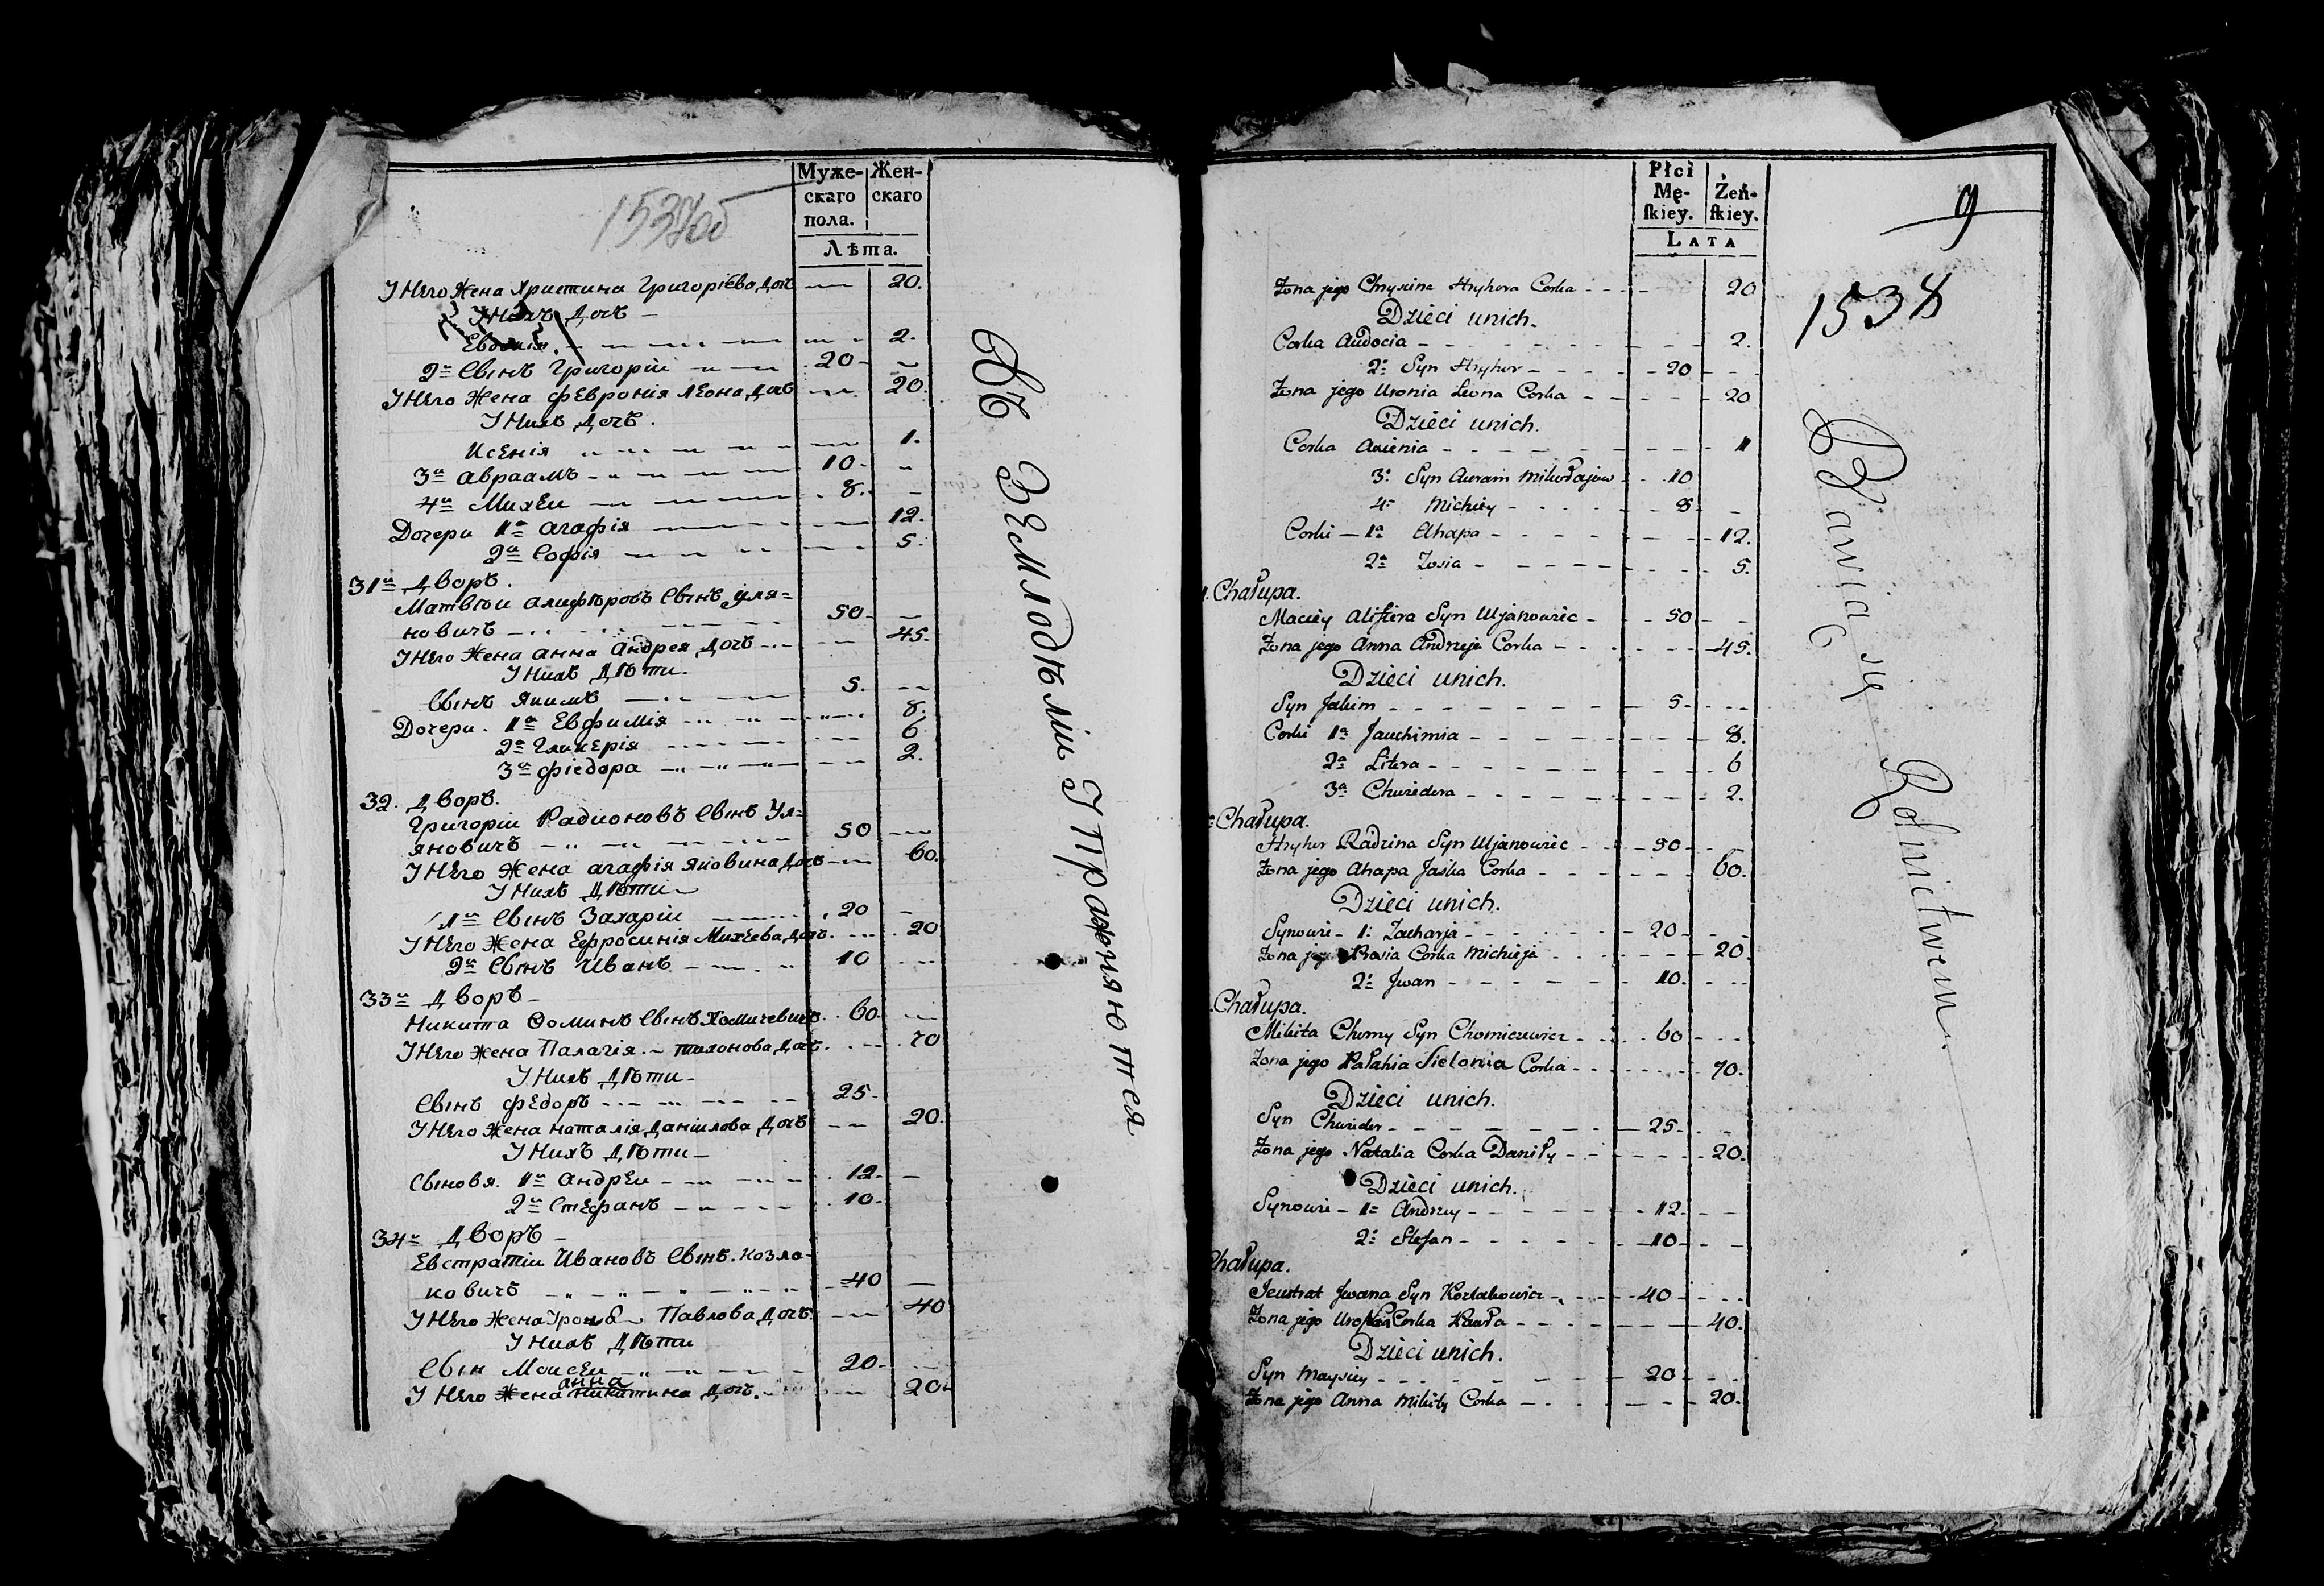 1537об
Муже-
скаго
пола.
Жен-
скаго
Лѣта.
У Него Жена Христина Григоріева Дочь — 20.
У Нихъ Дочь —
Евдокія — 2.
2й Сынъ Григорій — 20 —
У Него Жена Февронія Леона Дочь — 20.
У Нихъ Дочь.
Ксенія — 1.
3й Авраамъ — 10 —
4й Михей — 8. —
Дочери 1я Агафія — 12.
2я Софія — 5.
31й Дворъ.
Матвѣй Алифѣровъ Сынъ Уля=
новичъ — 50 —
У Него Жена Анна Андрея Дочь — 45.
У Нихъ Дѣти.
Сынъ Якимъ — 5. —
Дочери. 1я Евфимія — 8.
2я Гликерія — 6
3я Фіедора — 2.
32. Дворъ.
Григорій Радионовъ Сынъ Ул=
яновичъ — 50 —
У Него Жена Агафія Яковина Дочь — 60.
У Нихъ Дѣти
1й Сынъ Захарій — 20 —
У Него Жена Ефросинія Михеева Дочь — 20
2й Сынъ Иванъ — 10 —
33й Дворъ —
Никита Ѳоминъ Сынъ Хомичевичъ. 60 —
У Него Жена Палагія — Тихонова Дочь — 70
У Нихъ Дѣти —
Сынъ Федоръ — 25 —
У Него Жена Наталія Даніилова Дочь — 20.
У Нихъ Дѣти —
Сыновя. 1й Андрей — 12 —
2й Стефанъ — 10 —
34й Дворъ —
Евстратій Ивановъ Сынъ. Козла-
ковичъ — 40 —
У Него Жена Павлова Дочь — 40
У Нихъ Дѣти
Сын Моисей — 20 —
анна
У Него Жена Никитина Дочь. — 20
Въ Земледѣліи Упражняются
Płci
Mę-
skiey.
Żeń-
skiey.
LATA
9
1538
Żona jego Chrysina Hryhora Corka — 20
Dzieci unich.
Corka Audocia — 2.
2: Syn Hryhor — 20
Żona jego Uronia Leona Corka — 20
Dzieci unich.
Corka Axienia — 1
3: Syn Auram Mikołajow — 10
4: Michiey — 8 —
Corki — 1a Ahapa — 12.
2a Zosia — 5.
Chałupa.
Maciey Alifiera Syn Uljanowicz — 50 —
Żona jego Anna Andrzeja Corka — 45.
Dzieci unich.
Syn Jakim — 5 —
Corki 1a Jauchimia — 8.
2a Litera — 6
3a Chwiedora — 2.
Chałupa.
Hryhor Radzina Syn Uljanowicz — 50 —
Żona jego Ahapa Jaśka Corka — 60.
Dzieci unich.
Synowie — 1: Zacharja — 20 —
Żona jego Prosia Corka Michieja — 20
2: Jwan — 10 —
Chałupa.
Mikita Chomy Syn Chomiczewicz — 60 —
Żona jego Pałahia Cielonia Corka — 70.
Dzieci unich.
Syn Chwiedor — 25 —
Żona jego Natalia Corka Daniły — 20.
Dzieci unich.
Synowie — 1: Andrzey — 12 —
2: Stefan — 10 —
Chałupa.
Jeustrat Jwana Syn Kozlakowicz — 40 —
Żona jego Corka Pawła — 40.
Dzieci unich.
Syn Maysiey — 20 —
Żona jego Anna Mikity Corka — 20.
Bawią się Rolnictwem.